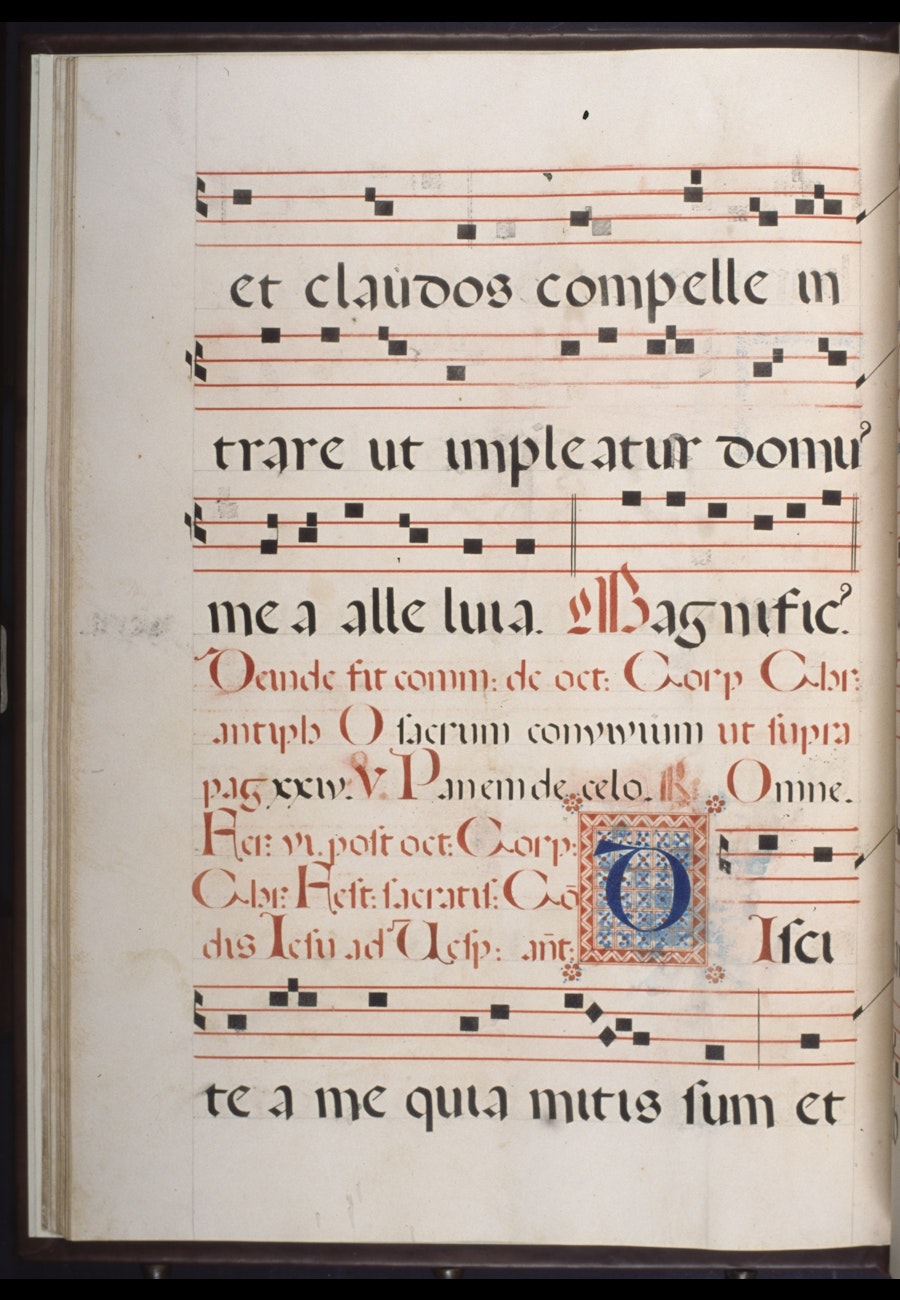 et claudos compelle in
trare ut impleatur domu᾿
me a alle luia. Magnific᾿.
Deinde fit comm: de oct: Corp Chr:
antiph O sacrum convivium ut supra
pag xxiv. V. Panem de celo. R. Omne.
Fer: vi. post oct: Corp:
Chr: Fest: sacratis: Co
dis Iesu ad Vesp: ant:
DIsci
te a me quia mitis sum et